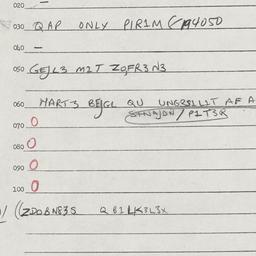 020 —
030 QAP ONLY PIR1M (/194050
040 —
050 GEJL3 M2T ZQFR3N3
060 MART3 BEJGL QU UNGR2S1L1T AF A
SFNAJDN/P1T3R
070 O
080 O
090 O
100 O
((ZDOBN83S QB1LK3L3X